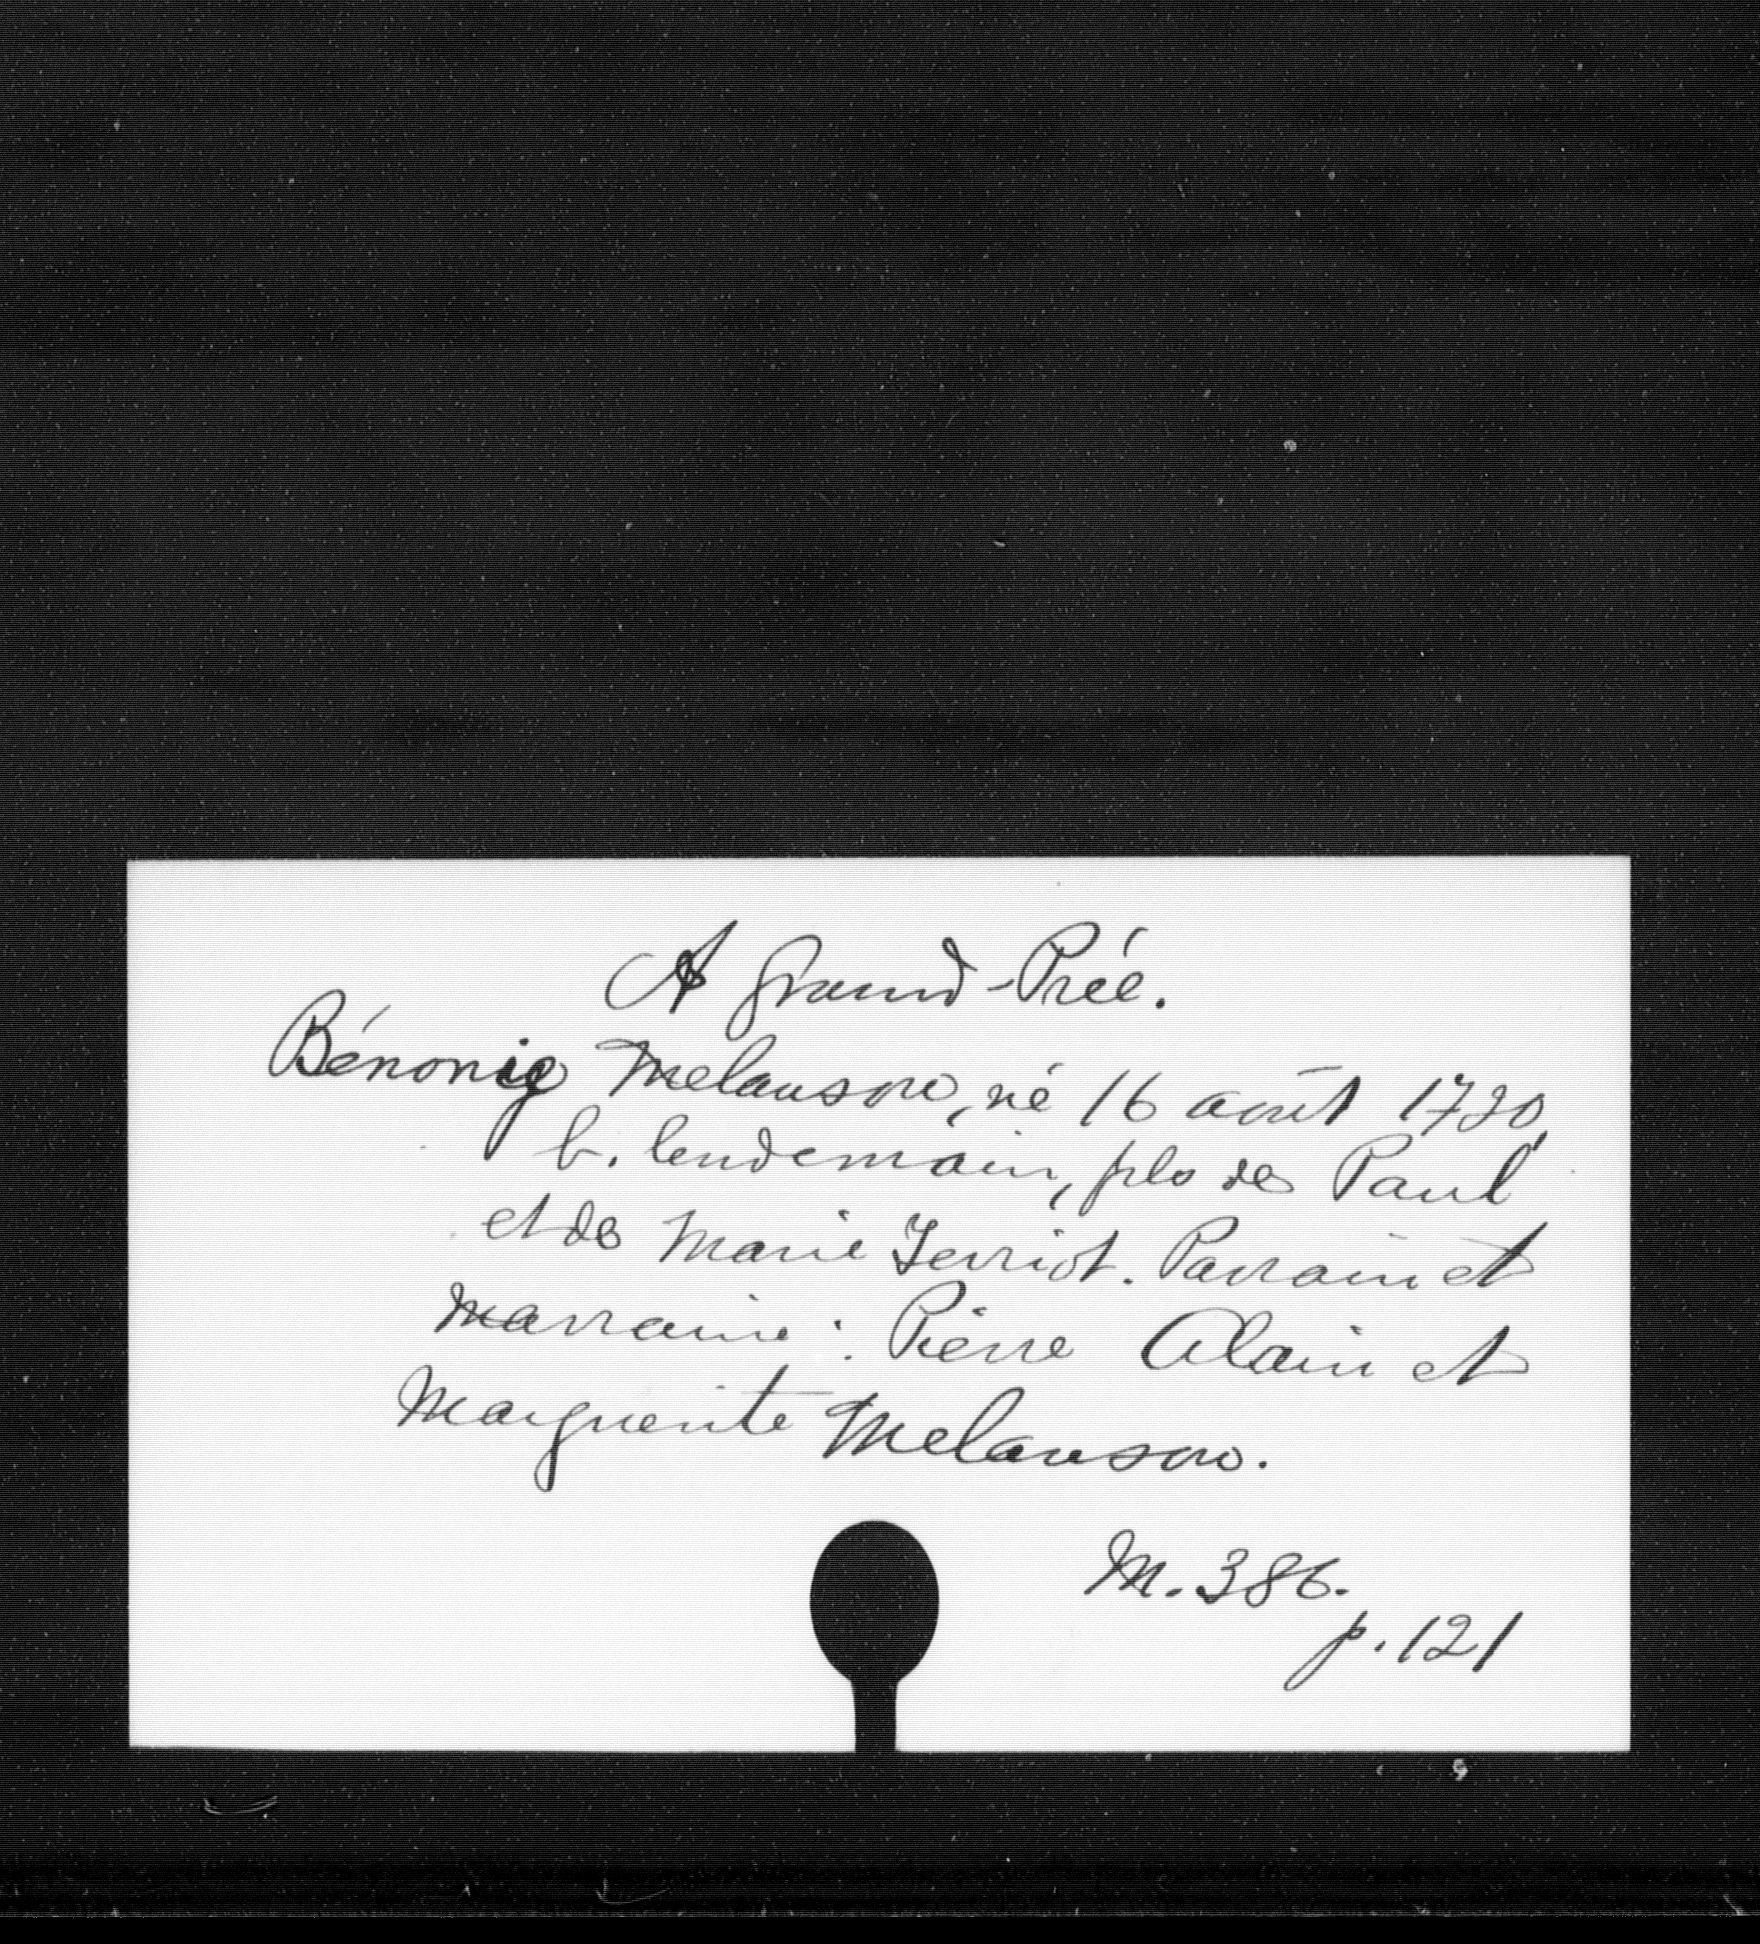 A Grand-Prée.
Bénonie Melanson, né 16 août 1720,
b. lendemain, fils de Paul
et de Marie Terriot. Parrain et
marraine: Pierre Alain et
Marguerite Melanson.
M. 386.
p. 121